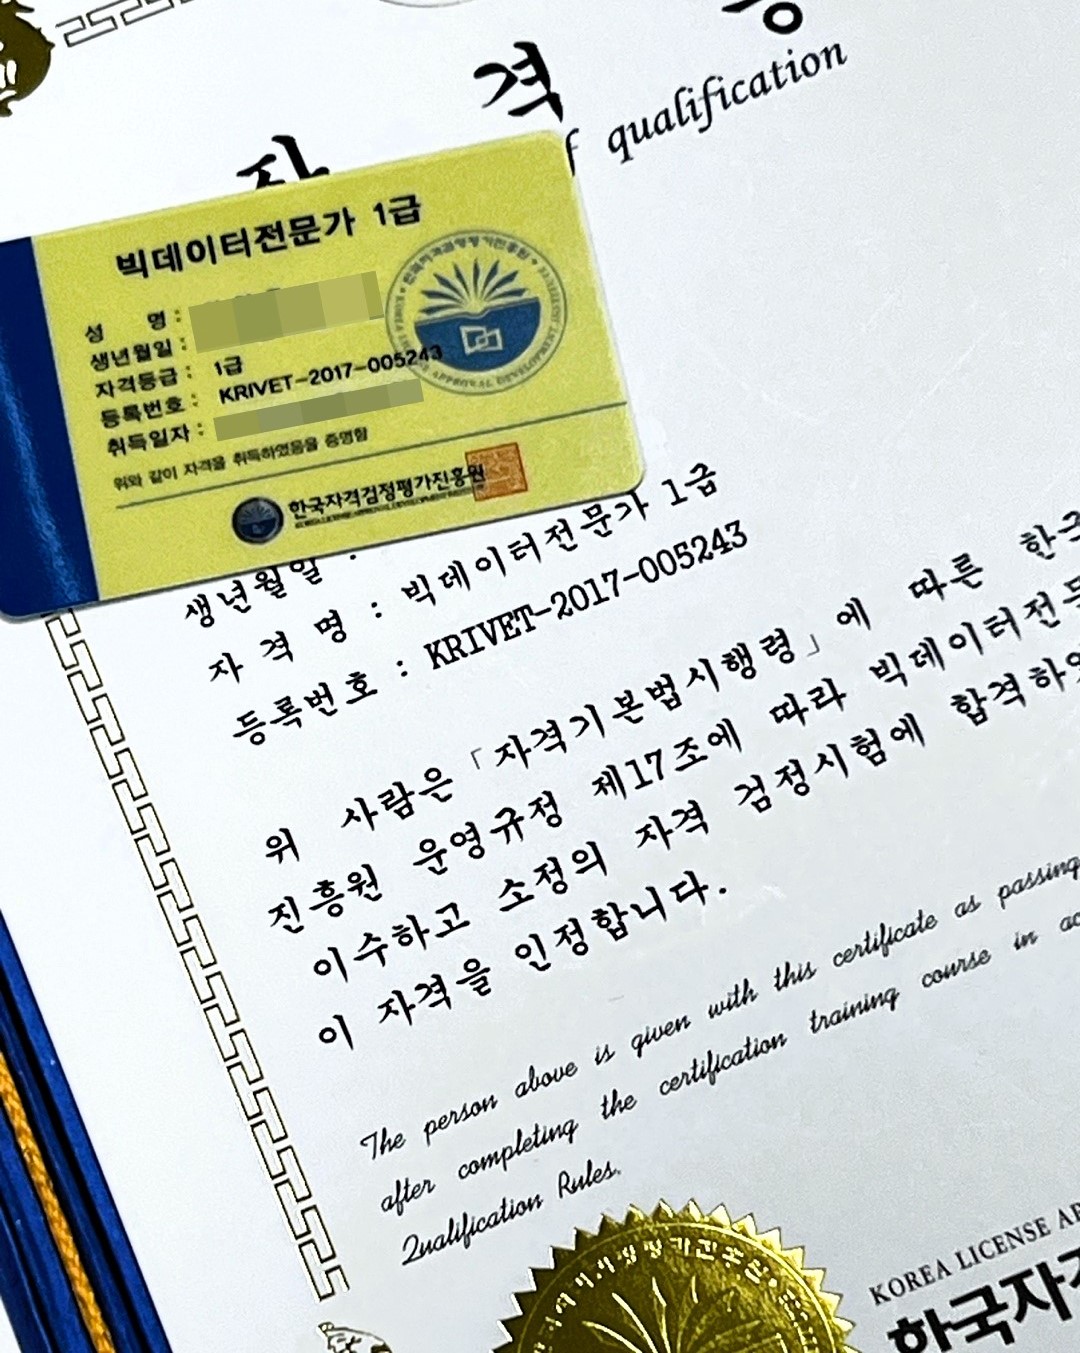 격
qualification
빅데이터전문가 1급
성 명 :
생년월일 :
자격등급 : 1급
등록번호 : KRIVET-2017-005243
취득일자 :
위와 같이 자격을 취득하였음을 증명함
한국자격검정평가진흥원
생년월일 :
자 격 명 : 빅데이터전문가 1급
등록번호 : KRIVET-2017-005243
위 사람은 「자격기본법시행령」에 따른 한국
진흥원 운영규정 제17조에 따라 빅데이터전문
이수하고 소정의 자격 검정시험에 합격하였
이 자격을 인정합니다.
The person above is given with this certificate as passing
after completing the certification training course in ac
Qualification Rules.
KOREA LICENSE AP
한국자격